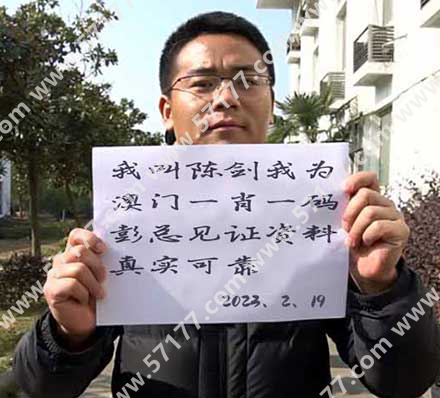 我叫陈剑我为
澳门一肖一码
彭总见证资料
真实可靠
2023、2、19
www.57177.com
www.57177.com
www.57177.com
www.57177.com
www.57177.com